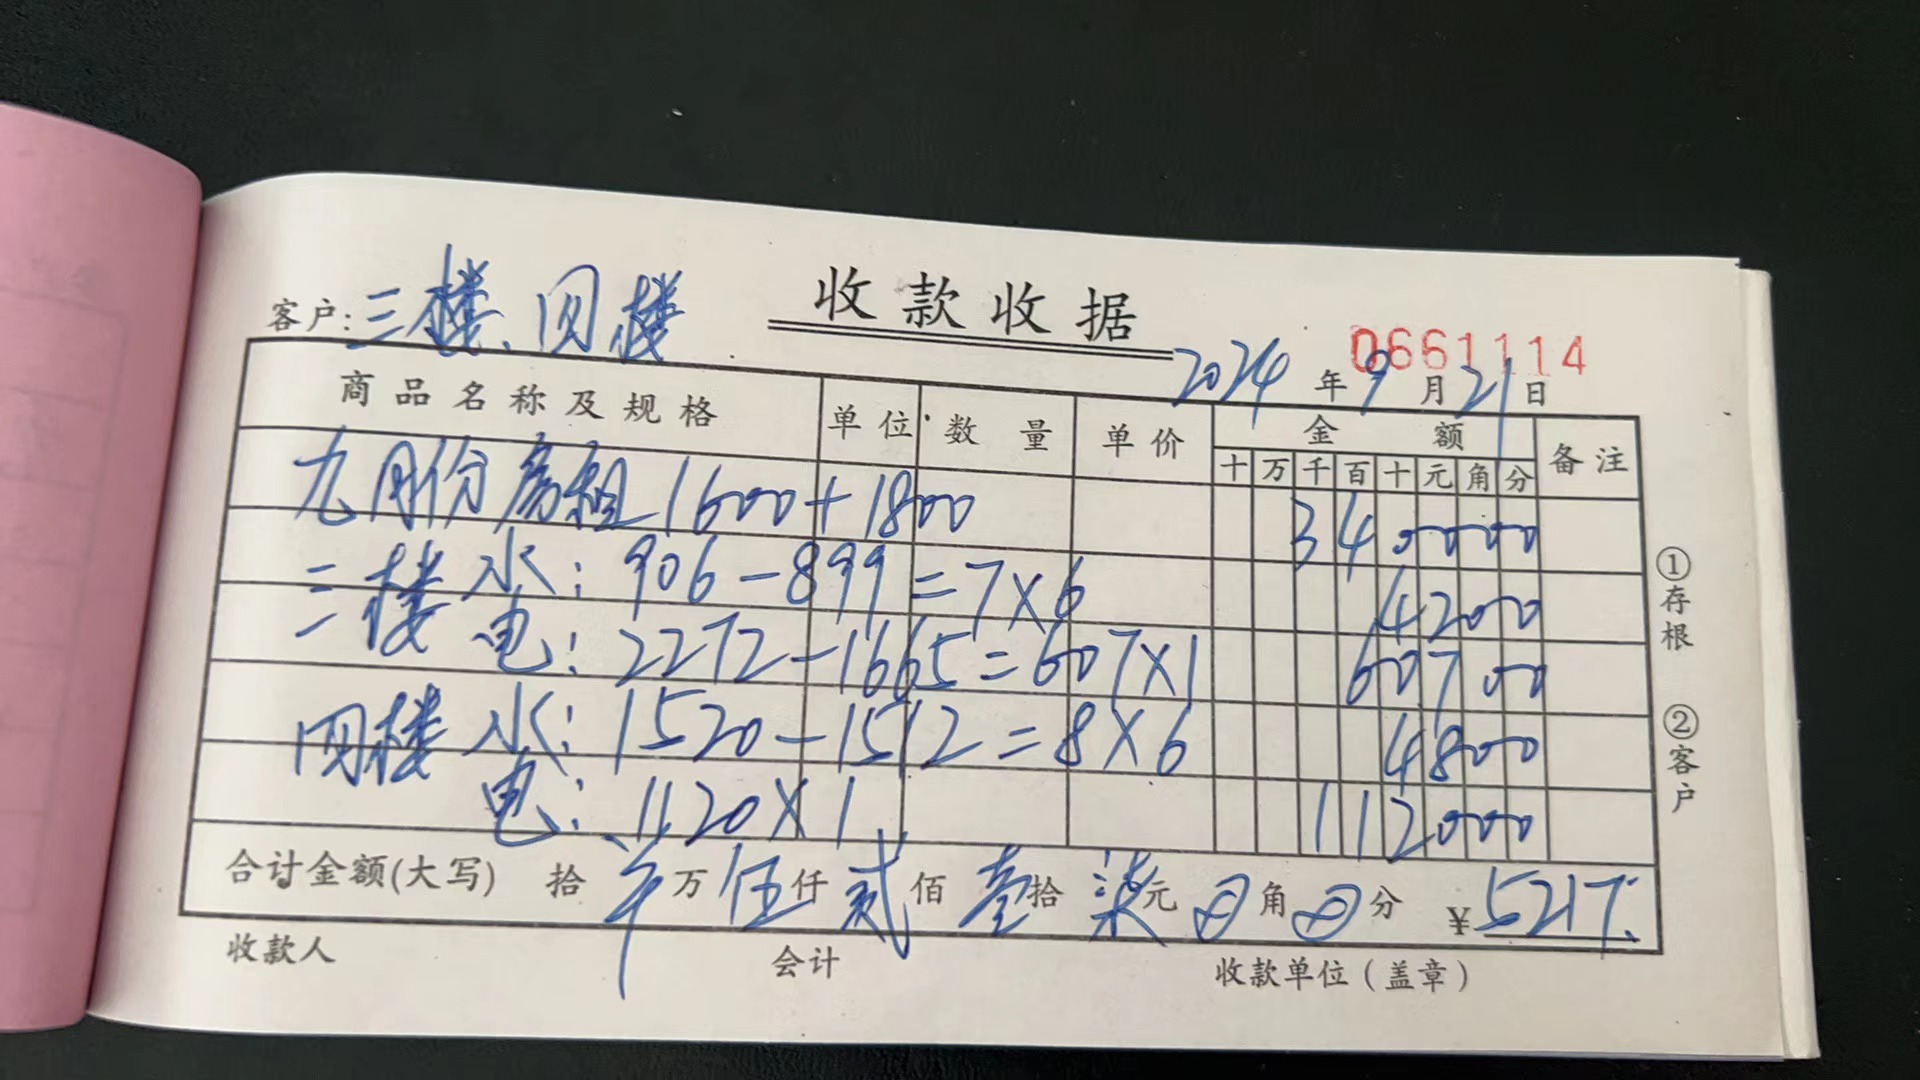 收款收据
客户: 三楼、四楼
0661114
2024 年 9 月 21 日
商品名称及规格 单位 数量 单价 金额 备注
十 万 千 百 十 元 角 分
九月份房租 1600+1800 340000
三楼 水: 906-899=7×6 4200
电: 2272-1665=607×1 60700
四楼 水: 1520-1512=8×6 4800
电: 1120×1 112000
合计金额(大写) 拾 万 伍仟 贰佰 壹拾 柒元 角 分 ¥5217.
收款人 会计 收款单位(盖章)
①存根 ②客户